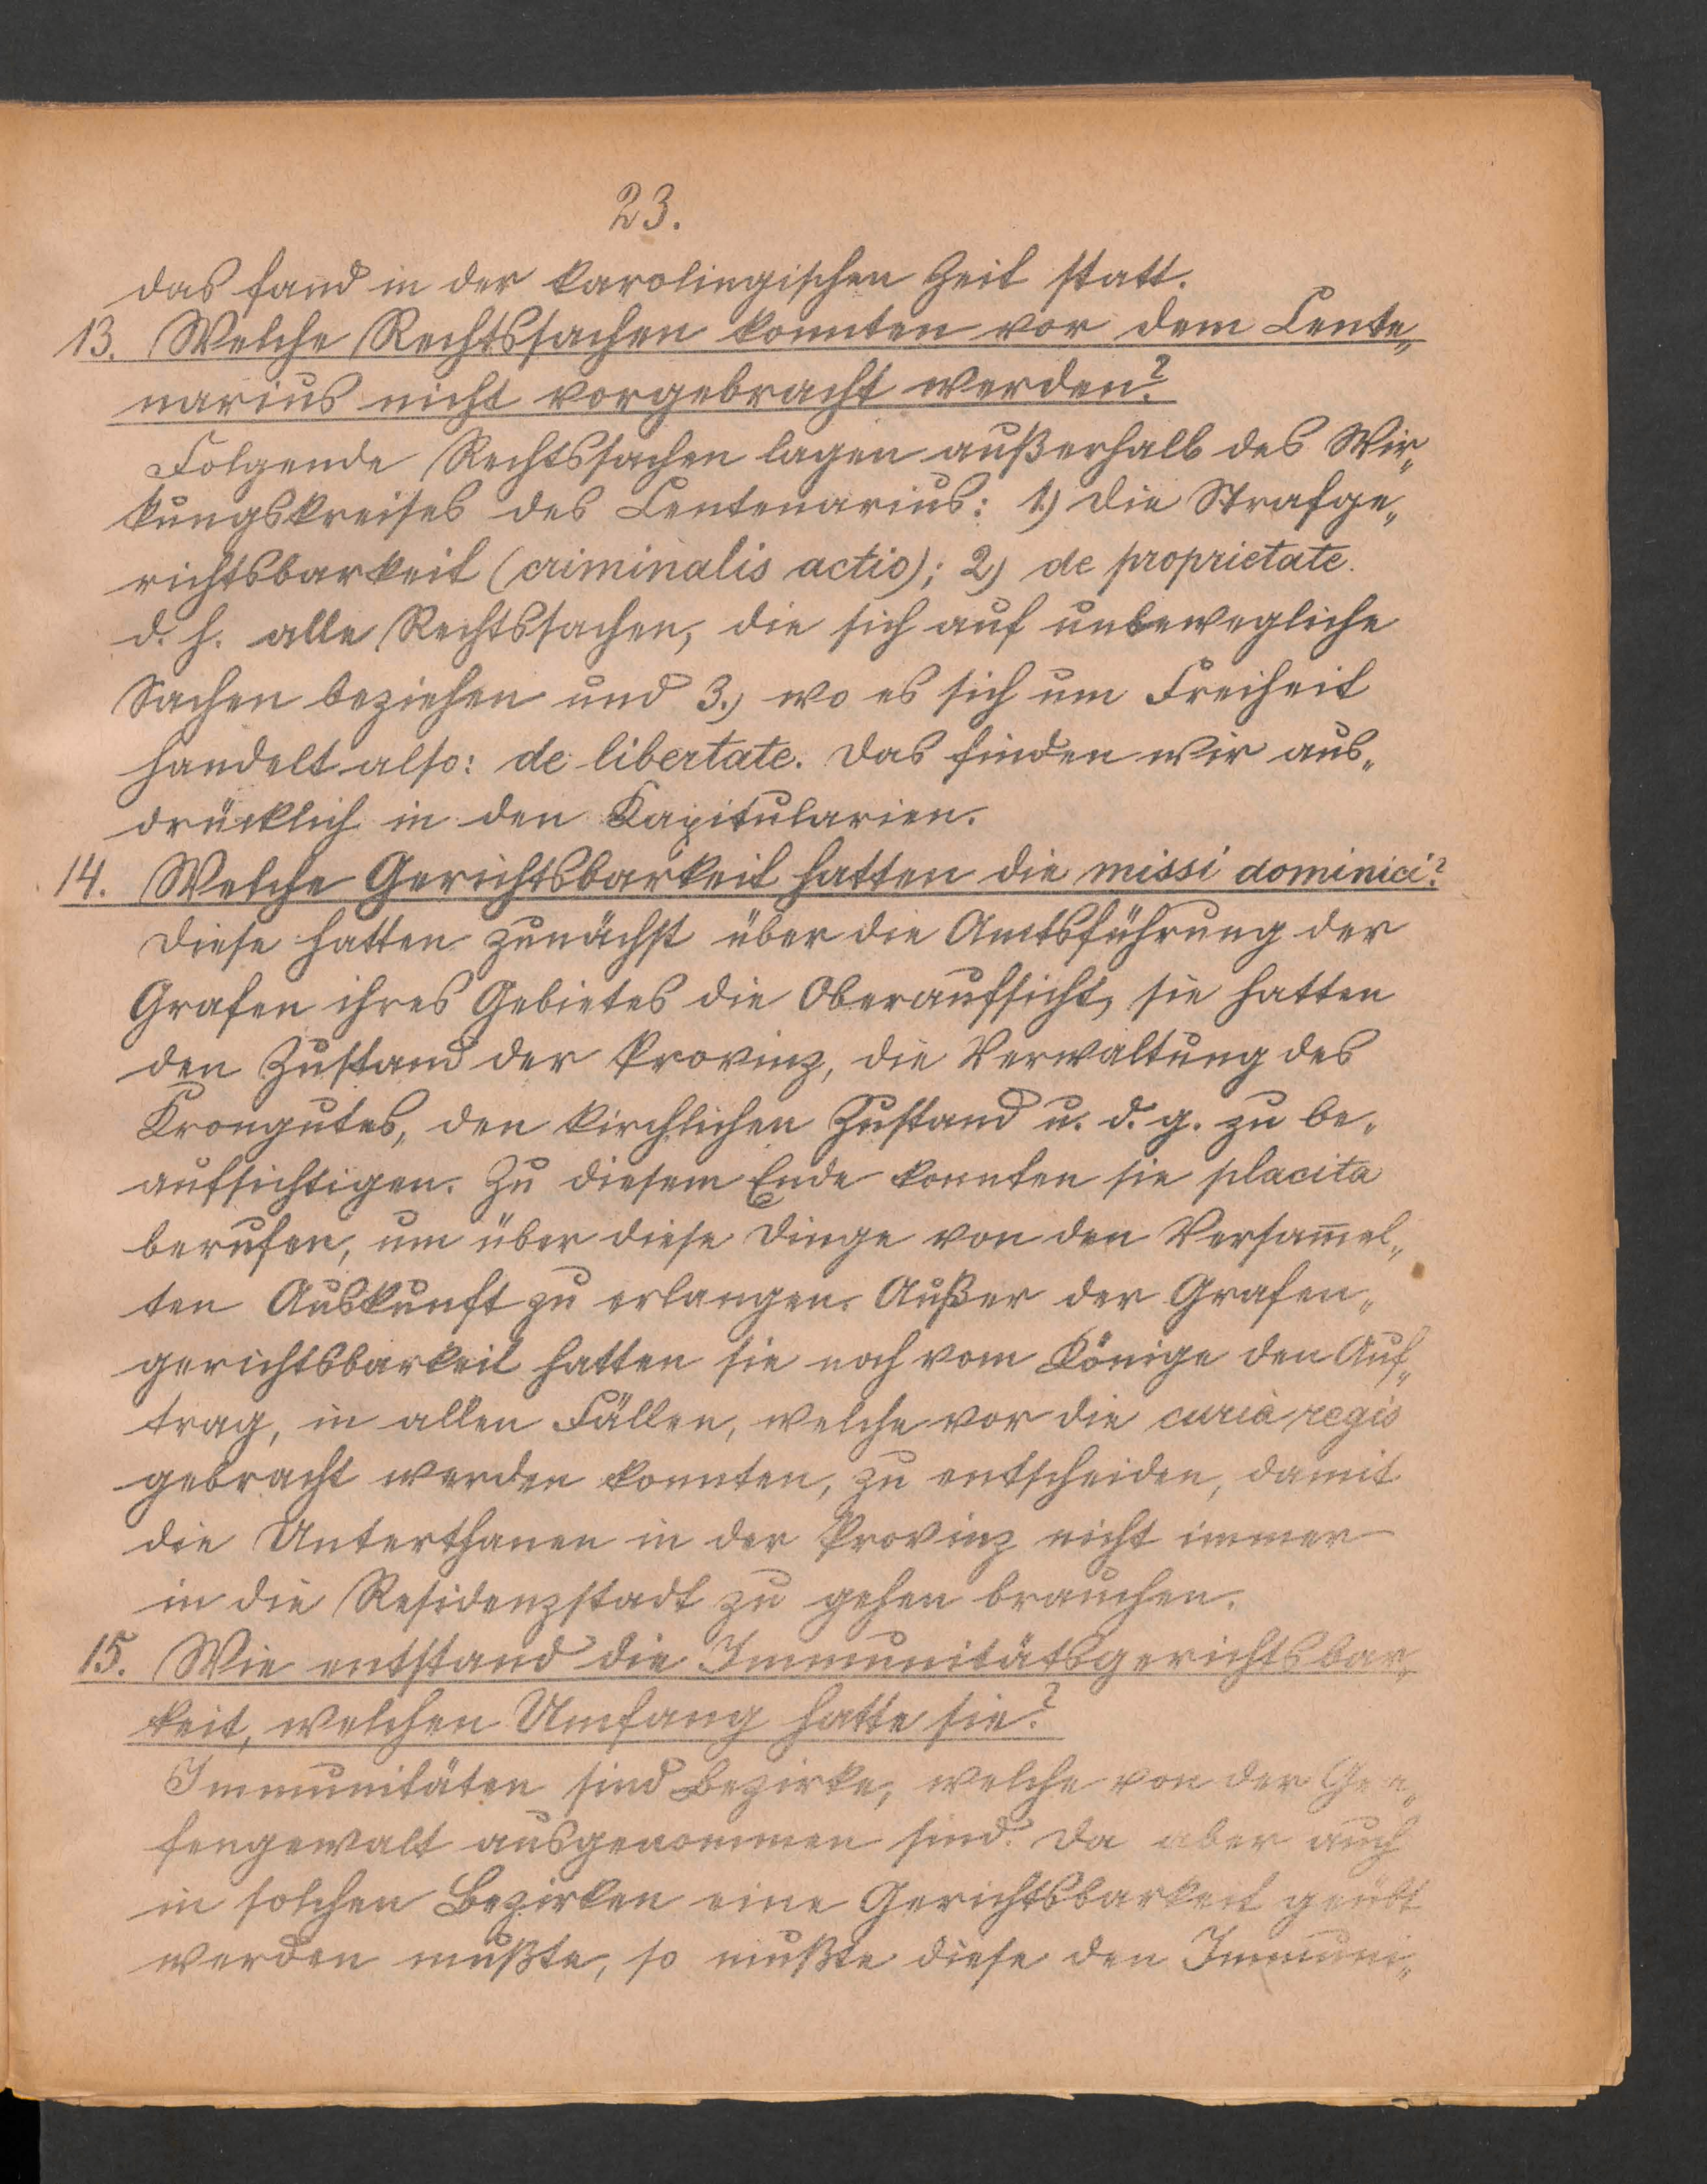 23.
das fand in der karolingischen Zeit statt.
13. Welche Rechtssachen konnten vor dem Cente„
narius nicht vorgebracht werden?
Folgende Rechtssachen lagen außerhalb des Wir„
kungskreises des Centenarius: 1.) die Strafge„
richtsbarkeit (criminalis actio); 2) de proprietate.
d. h. alle Rechtssachen, die sich auf unbewegliche
Sachen beziehen und 3.) wo es sich um Freiheit
handelt also: de libertate. Das finden wir aus„
drücklich in den Kapitularien.
14. Welche Gerichtsbarkeit hatten die missi dominici?
Diese hatten zunächst über die Amtsführung der
Grafen ihres Gebietes die Oberaufsicht, sie hatten
den Zustand der Provinz, die Verwaltung des
Krongutes, den kirchlichen Zustand u. d. g. zu be„
aufsichtigen. Zu diesem Ende konnten sie placita
berufen, um über diese Dinge von den Versam̅el„
ten Auskunft zu erlangen. Außer der Grafen„
gerichtsbarkeit hatten sie noch vom Könige den Auf„
trag, in allen Fällen, welche vor die curia regis
gebracht werden konnten, zu entscheiden, damit
die Unterthanen in der Provinz nicht immer
in die Residenzstadt zu gehen brauchen.
15. Wie entstand die Immunitätsgerichtsbar„
keit, welchen Umfang hatte sie?
Immunitäten sind Bezirke, welche von der Gra„
fengewalt ausgenommen sind. Da aber auch
in solchen Bezirken eine Gerichtsbarkeit geübt
werden mußte, so mußte diese den Immuni„